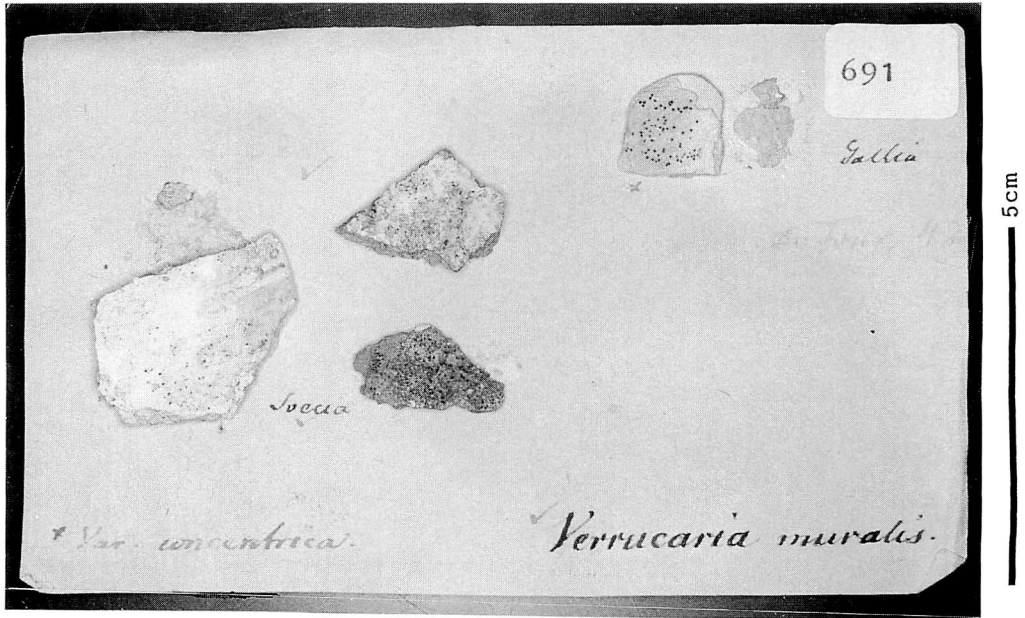 691
Gallia
5cm
Svecia
* Var. concentrica.
Verrucaria muralis.